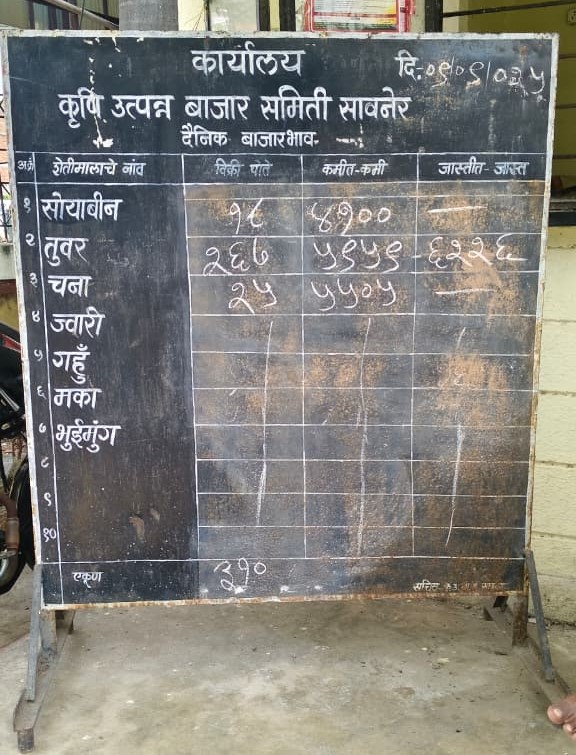 कार्यालय दि:-०९/०९/०२५
कृषि उत्पन्न बाजार समिती सावनेर
दैनिक बाजारभाव-
अ.क्रं शेतीमालाचे नांव विक्री पोते कमीत-कमी जास्तीत-जास्त
१ सोयाबीन १८ ४१०० —
२ तुवर २६७ ५९५९ - ६२२६
३ चना २५ ५५०५ —
४ ज्वारी
५ गहुँ
६ मका
७ भुईमुंग
८
९
१०
एकूण ३१०
सचिव